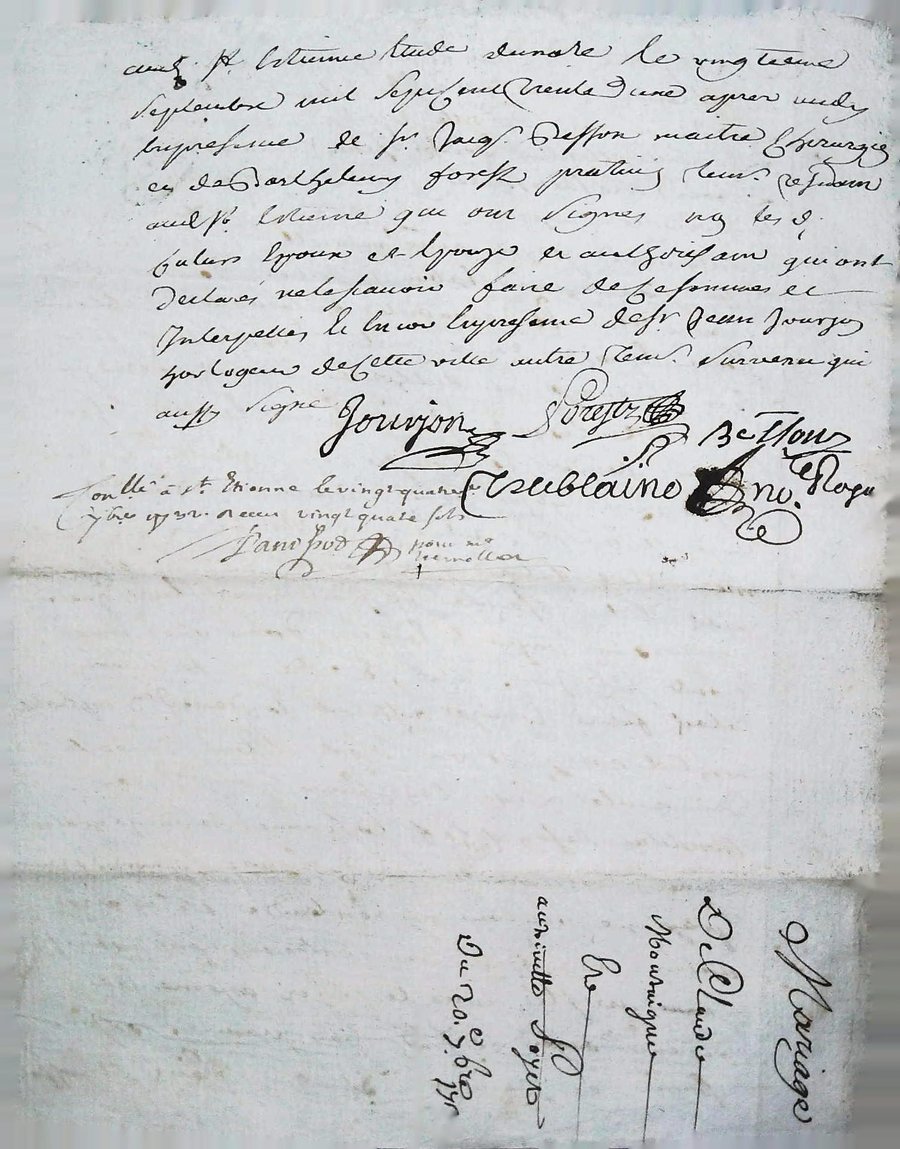 aud. St. Etienne Etude du no.re le vingtieme
Septembre mil Sept Cent Trente d'une apres midy
En presence de Sr. Jacq. Besson maitre Chirurgie
et de Barthelemy forest praticy tem. residam
aud St. Etienne qui ont Signes
futurs Epoux et Epouze qui ont
Declarés ne le scavoir faire de Ce sommes et
Interpellés Et Encor En presence de Sr Jean Jourjon
horlogeur de Cette ville autre tem. Survenu qui
aussy Signé
Jourjon Forest Besson
Thublaine
Conllé à St. Etienne le vingt quatre
7bre 1731. Receu vingt quatre sols
pour mr
Mariage
De Claude
Montaigne
Et
Antoinette Soyer
Du 20.e 7.bre